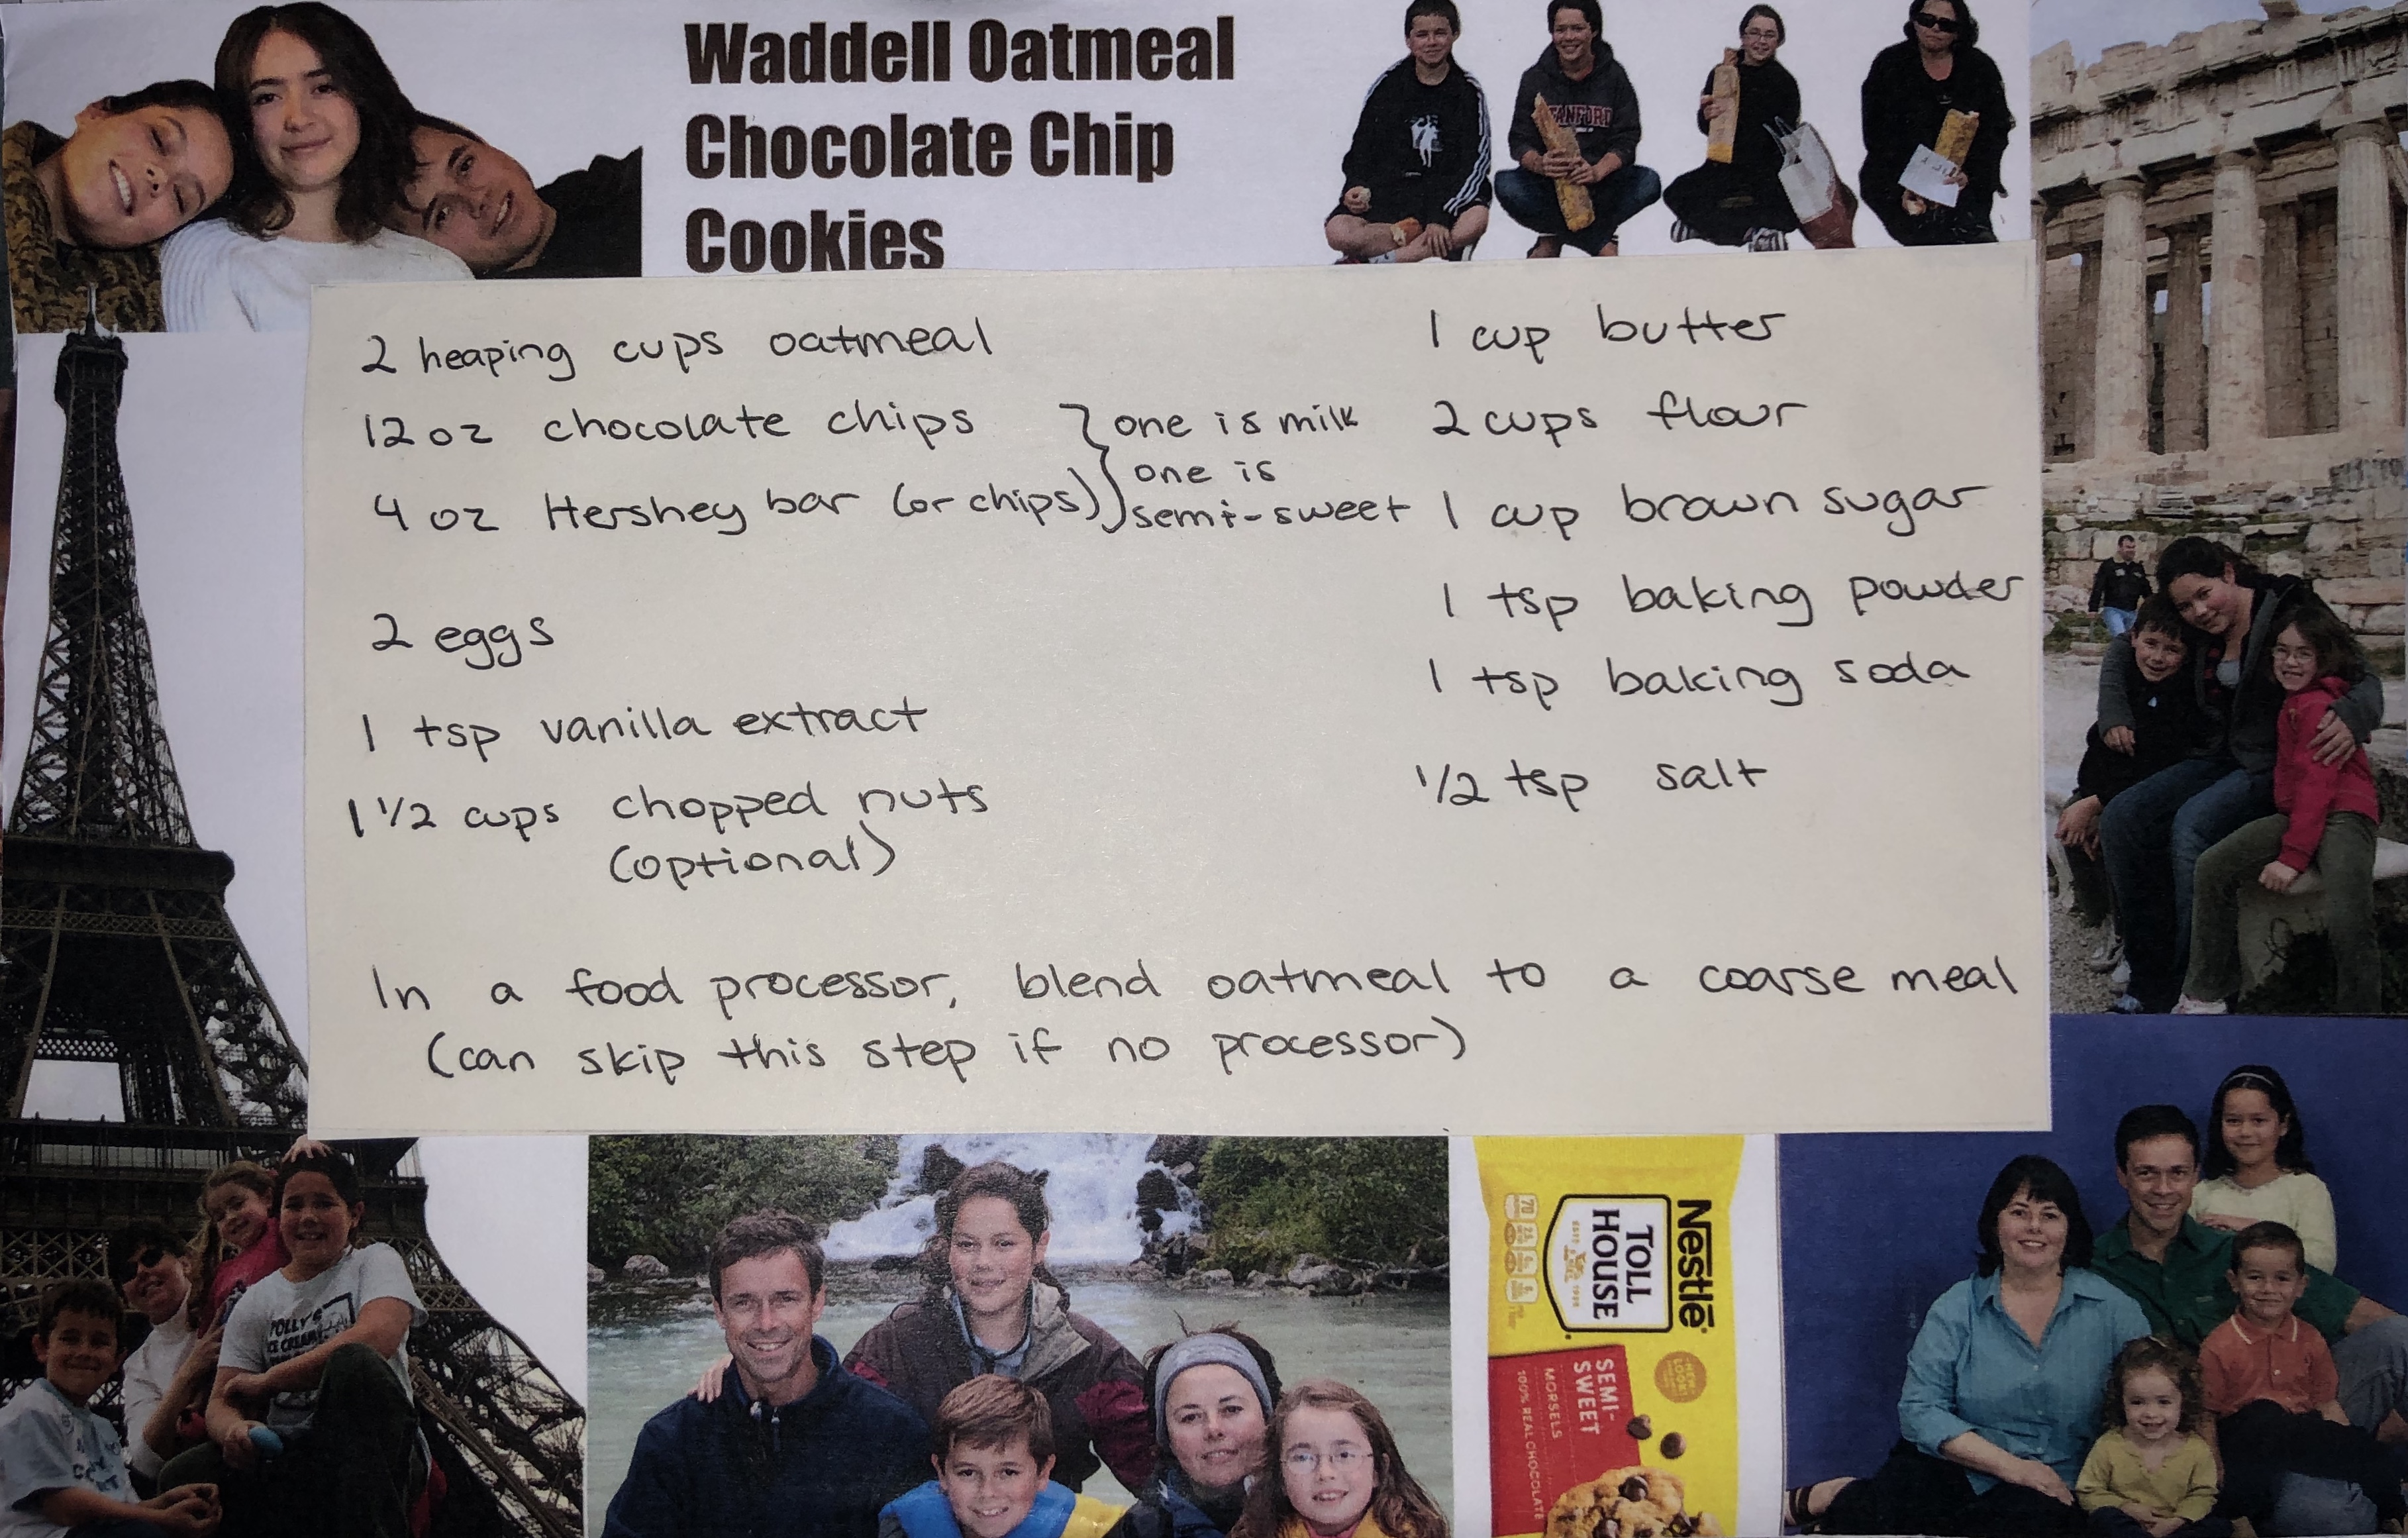 Waddell Oatmeal
Chocolate Chip
Cookies
STANFORD
2 heaping cups oatmeal
12 oz chocolate chips
4 oz Hershey bar (or chips)
} one is milk
one is
semi-sweet
2 eggs
1 tsp vanilla extract
1 1/2 cups chopped nuts
(optional)
1 cup butter
2 cups flour
1 cup brown sugar
1 tsp baking powder
1 tsp baking soda
1/2 tsp salt
In a food processor, blend oatmeal to a coarse meal
(can skip this step if no processor)
Nestlē
TOLL
HOUSE
SEMI-
SWEET
MORSELS
100% REAL CHOCOLATE